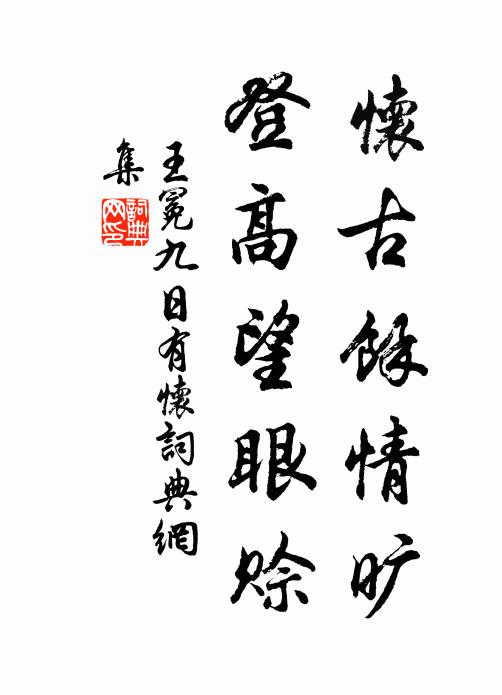 懷古餘情旷
登高望眼赊
王冕九日有懷詞典網
集
詞典
网印